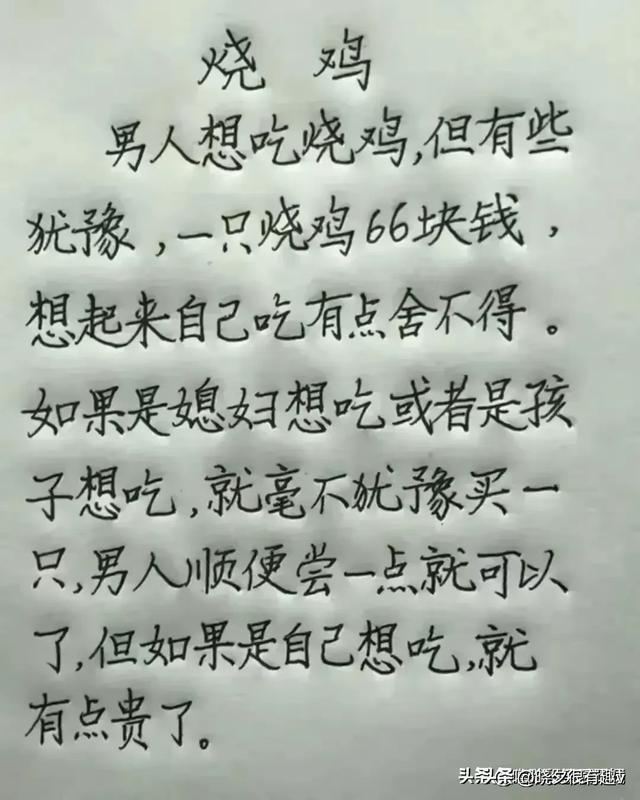 烧 鸡
男人想吃烧鸡,但有些
犹豫,一只烧鸡66块钱,
想起来自己吃有点舍不得。
如果是媳妇想吃或者是孩
子想吃,就毫不犹豫买一
只,男人顺便尝一点就可以
了,但如果是自己想吃,就
有点贵了。
头条 @晓艾很有趣